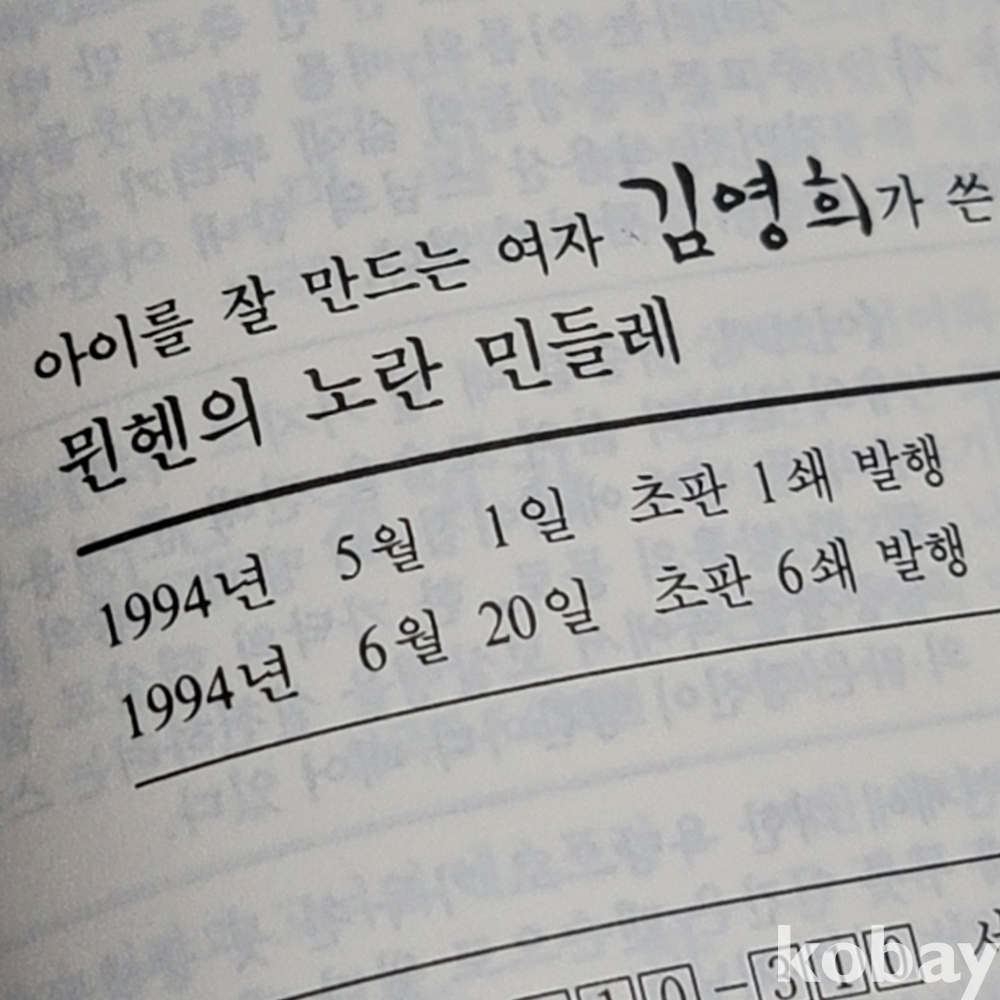 아이를 잘 만드는 여자 김영희가 쓴
뮌헨의 노란 민들레
1994년 5월 1일 초판 1쇄 발행
1994년 6월 20일 초판 6쇄 발행
10-316
kobay